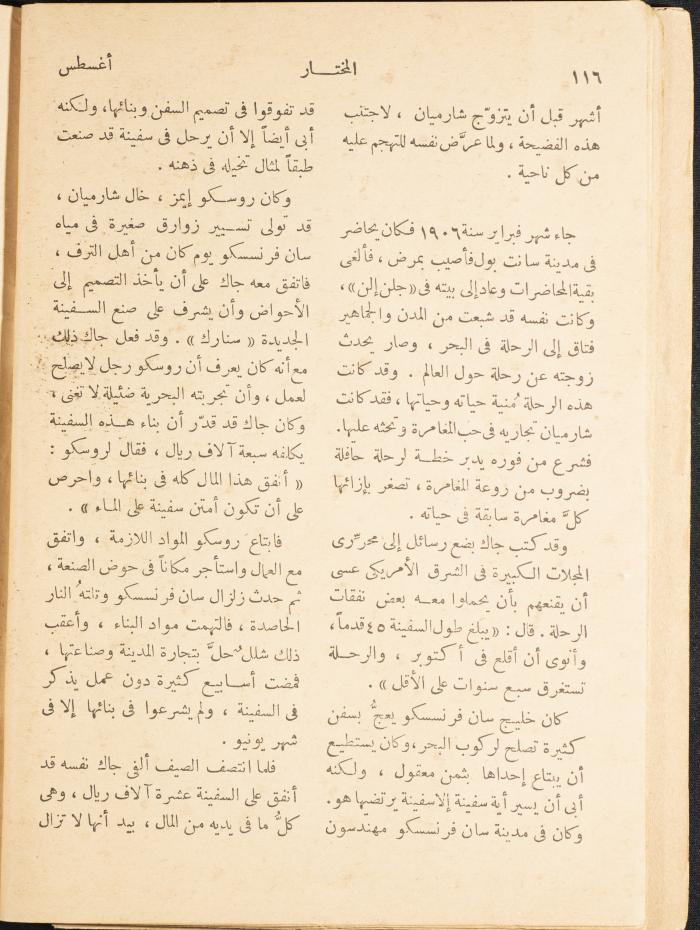 ١١٦
المختار
أغسطس
أشهر قبل أن يتزوّج شارميان ، لاجتنب
هذه الفضيحة ، ولما عرّض نفسه للتهجم عليه
من كل ناحية .
جاء شهر فبراير سنة ١٩٠٦ فكان يحاضر
فى مدينة سانت بول فأصيب بمرض ، فألغى
بقية المحاضرات وعاد إلى بيته فى « جلن إلن » ،
وكانت نفسه قد شبعت من المدن والجماهير
فتاق إلى الرحلة فى البحر ، وصار يحدث
زوجته عن رحلة حول العالم . وقد كانت
هذه الرحلة مُنية حياته وحياتها ، فقد كانت
شارميان تجاريه فى حب المغامرة وتحثه عليها .
فشرع من فوره يدبر خطة لرحلة حافلة
بضروب من روعة المغامرة ، تصغر بإزائها
كلَّ مغامرة سابقة فى حياته .
وقد كتب جاك بضع رسائل إلى محررى
المجلات الكبيرة فى الشرق الأمريكى عسى
أن يقنعهم بأن يحملوا معه بعض نفقات
الرحلة . قال : « يبلغ طول السفينة ٤٥ قدماً ،
وأنوى أن أقلع فى أكتوبر ، والرحلة
تستغرق سبع سنوات على الأقل » .
كان خليج سان فرنسسكو يعجُّ بسفن
كثيرة تصلح لركوب البحر ، وكان يستطيع
أن يبتاع إحداها بثمن معقول ، ولكنه
أبى أن يسير أية سفينة إلا سفينة يرتضيها هو .
وكان فى مدينة سان فرنسسكو مهندسون
قد تفوقوا فى تصميم السفن وبنائها ، ولكنه
أبى أيضاً إلا أن يرحل فى سفينة قد صنعت
طبقاً لمثال تخيله فى ذهنه .
وكان روسكو إيمز ، خال شارميان ،
قد تولى تسيير زوارق صغيرة فى مياه
سان فرنسسكو يوم كان من أهل الترف ،
فاتفق معه جاك على أن يأخذ التصميم إلى
الأحواض وأن يشرف على صنع السفينة
الجديدة « سنارك » . وقد فعل جاك ذلك
مع أنه كان يعرف أن روسكو رجل لا يصلح
لعمل ، وأن تجربته البحرية ضئيلة لا تغنى ،
وكان جاك قد قدّر أن بناء هذه السفينة
يكلفه سبعة آلاف ريال ، فقال لروسكو :
« أنفق هذا المال كله فى بنائها ، واحرص
على أن تكون أمتن سفينة على الماء » .
فابتاع روسكو المواد اللازمة ، واتفق
مع العمال واستأجر مكاناً فى حوض الصنعة ،
ثم حدث زلزال سان فرنسسكو وتلته النار
الحاصدة ، فالتهمت مواد البناء ، وأعقب
ذلك شلل حلَّ بتجارة المدينة وصناعتها ،
فمضت أسابيع كثيرة دون عمل يذكر
فى السفينة ، ولم يشرعوا فى بنائها إلا فى
شهر يونيو .
فلما انتصف الصيف ألفى جاك نفسه قد
أنفق على السفينة عشرة آلاف ريال ، وهى
كلُّ ما فى يديه من المال ، بيد أنها لا تزال